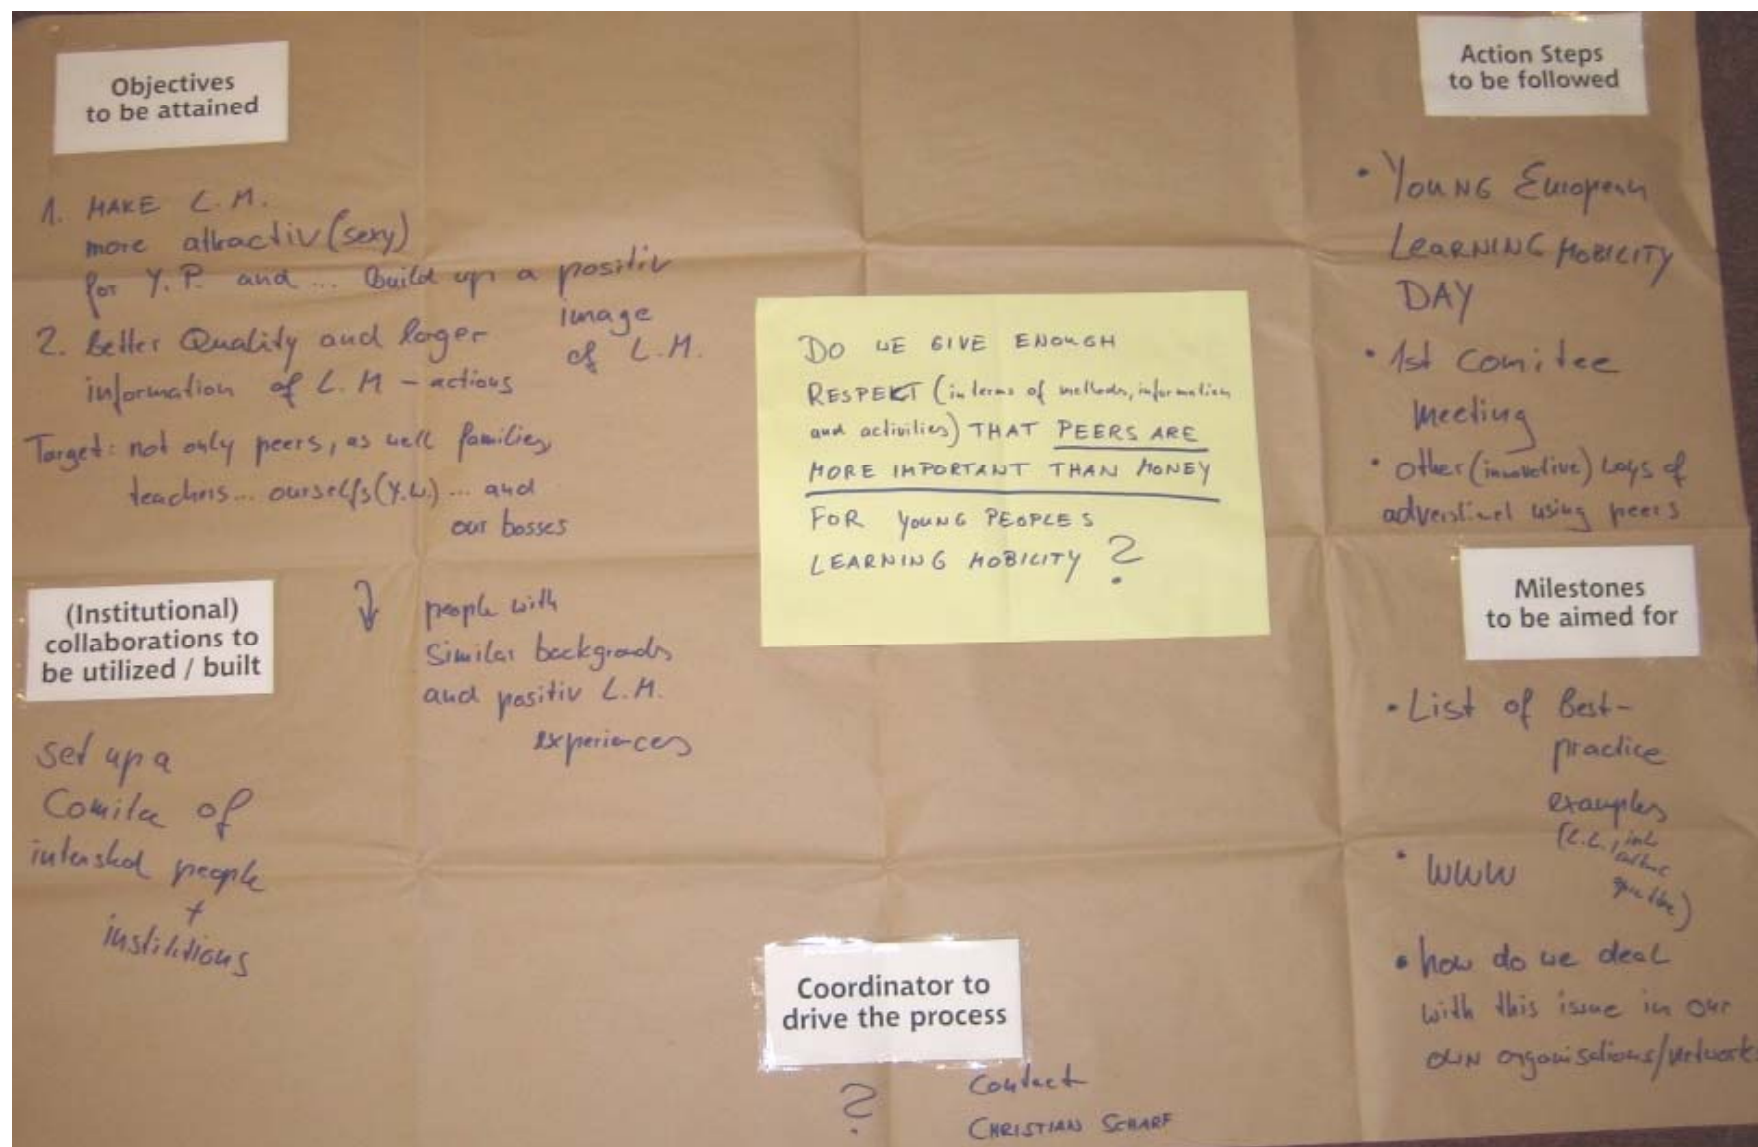 Objectives
to be attained
1. MAKE L.M.
more attractiv (sexy)
for Y.P. and ... Build up a positiv
image
of L.M.
2. Better Quality and larger
information of L.M - actions
Target: not only peers, as well families,
teachers ... ourselfs (Y.W.) ... and
our bosses
(Institutional)
collaborations to
be utilized / built
people with
similar backgrounds
and positiv L.M.
experiences
set up a
Comitee of
intersted people
+
institutions
DO WE GIVE ENOUGH
RESPEKT (in terms of methods, information
and activities) THAT PEERS ARE
MORE IMPORTANT THAN MONEY
FOR YOUNG PEOPLES
LEARNING MOBILITY ?
Coordinator to
drive the process
?
Contact
CHRISTIAN SCHARF
Action Steps
to be followed
• YOUNG European
LEARNING MOBILITY
DAY
• 1st Comitee
meeting
• other (innovative) ways of
using peers
Milestones
to be aimed for
• List of Best-
practice
examples
• WWW
• how do we deal
with this issue in our
OWN organisations/networks